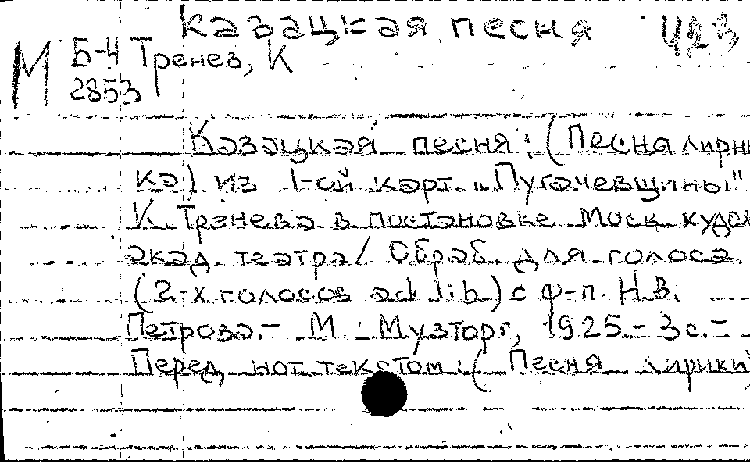 казацкая песня 423
М Б-4 Тренев, К
2853
Казацкая песня: (Песня лирни
ка) из 1-ой карт. „Пугачевщины"
К Тренева в постановке Моск худож
акад. театра / Обраб. для голоса
(2-х голосов ad lib) с ф-п. Н.В.
Петрова.- М : Музторг, 1925.- 3с.-
Перед нот текстом: (Песня лирики)